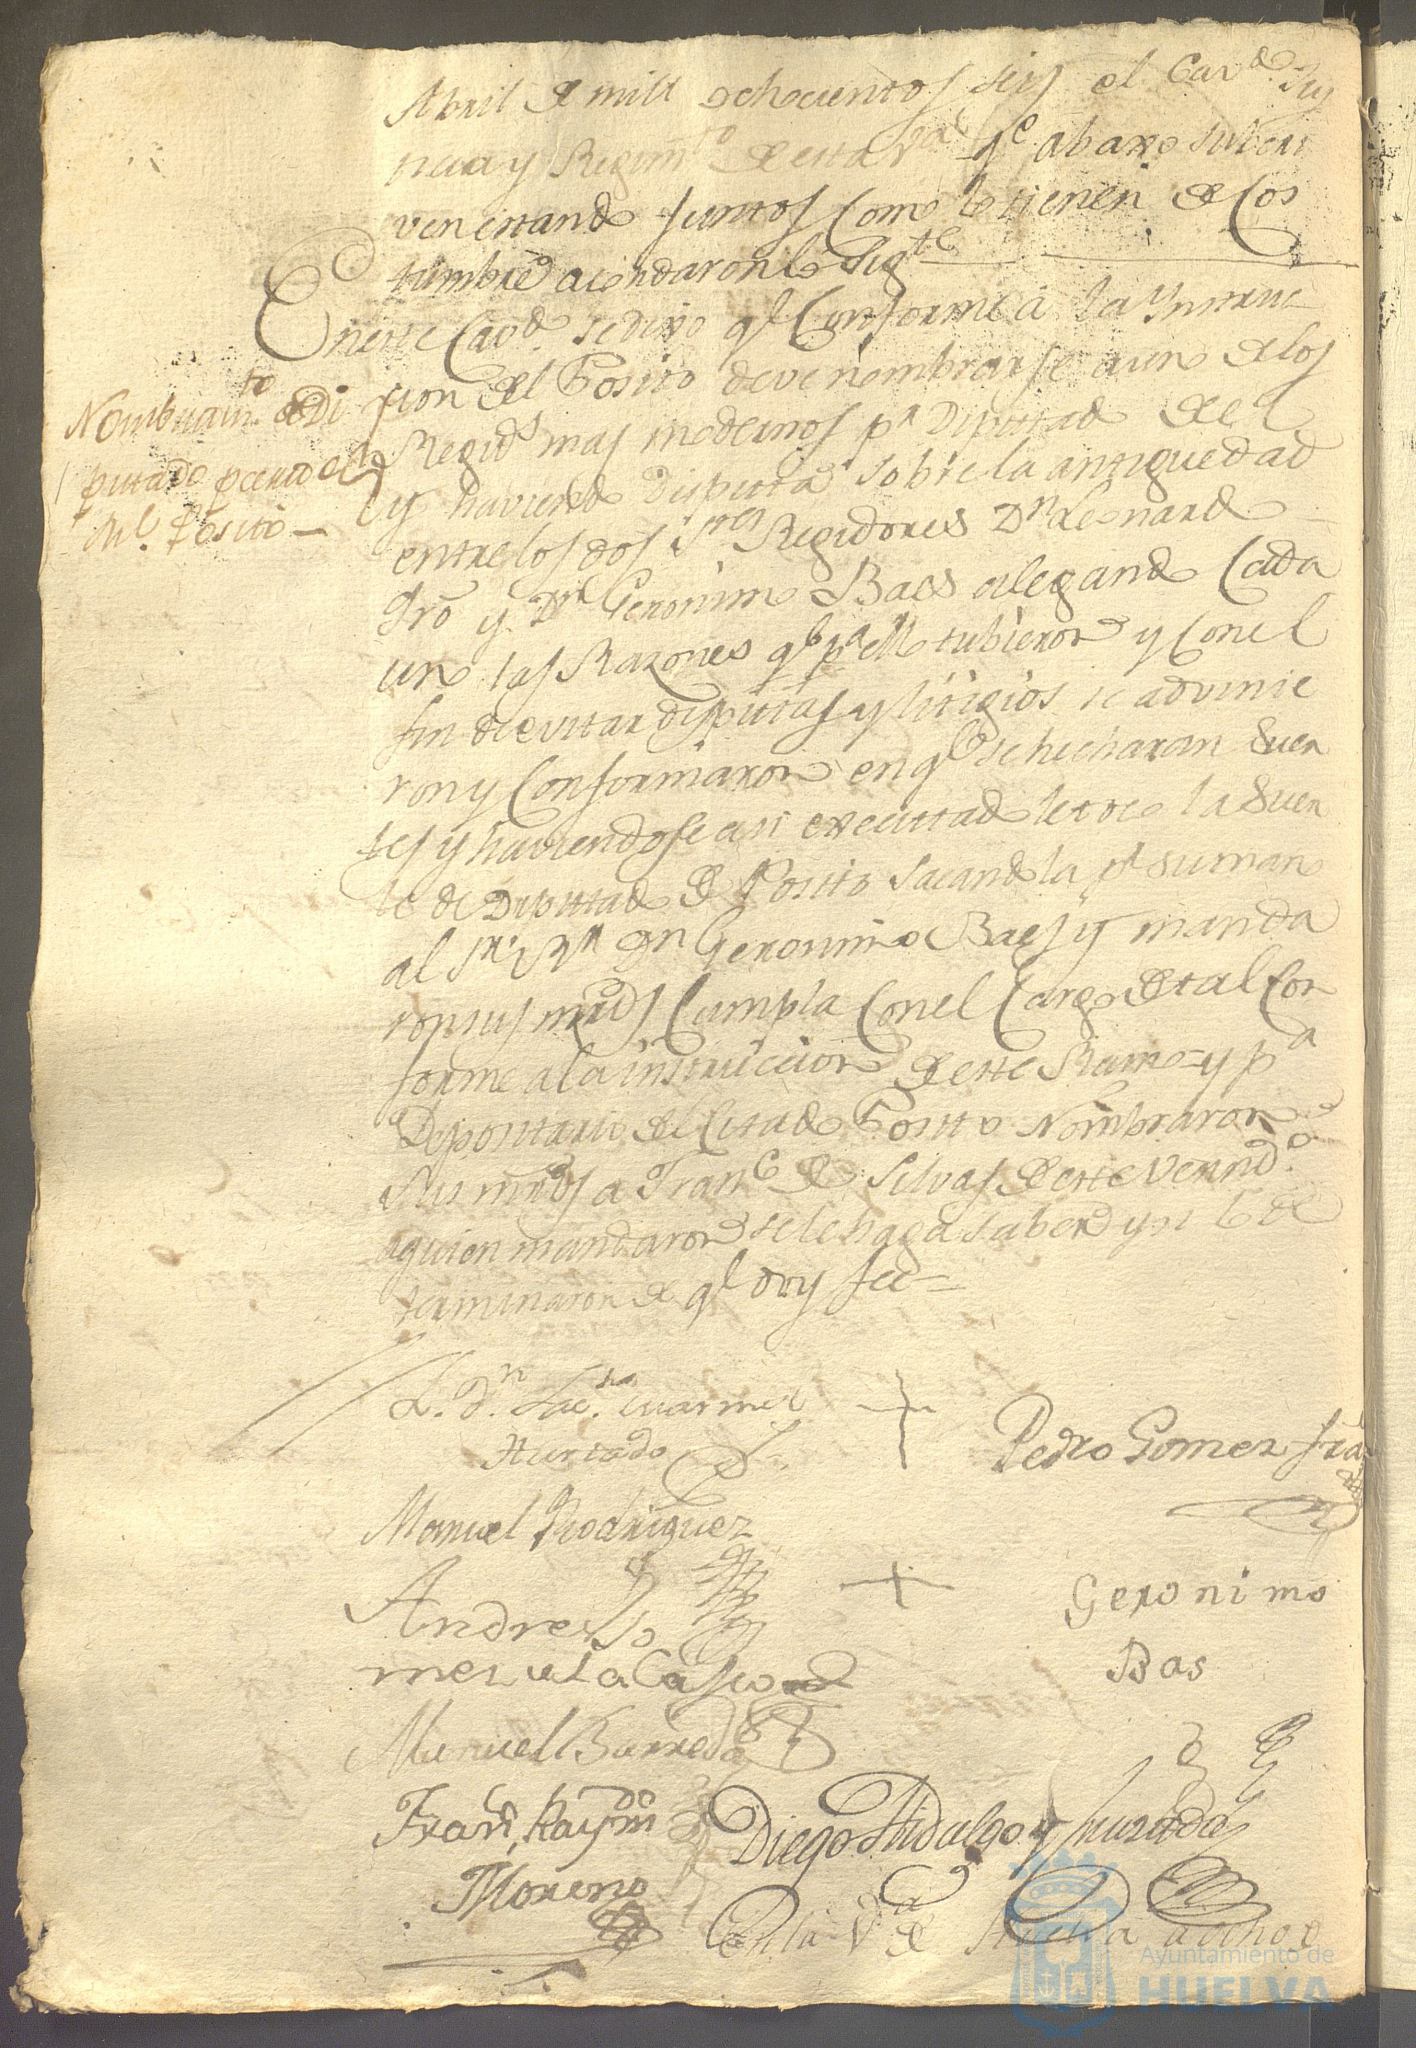 Abril de mill ochocientos seis el Cavdo Jus
ticia y Regimto de esta Va qe abaxo subscri
ven estando juntos Como lo tienen de Cos
tumbre acordaron lo Sigte
En este Cavdo se dixo qe Conforme a la Ynstruc
cion del Posito deve nombrarse a uno de los
Regids mas modernos pa Diputado de el
y haviendo disputa sobre la antiguedad
entre los dos Sres Regidores Dn Leonardo
y Dn Geronimo Baes alegando Cada
uno las Razones qe pa ello tubieron y Con el
fin de evitar disputas y litigios se advinie
ron y Conformaron en qe se hecharan Suer
tes y haviendose asi executado le toco la Suer
te de Diputado de Posito Sacandola pr su mano
al Sr Dn Geronimo Baes y manda
ron sus mrds Cumpla Con el Cargo de tal Con
forme a la instruccion de este Ramo = y pa
Depositario del Citado Posito Nombraron
Sus mrds a Franco de Silvas de este Vecindo
a quien mandaron se le haga saber y asi lo de
terminaron de qe doy fee =
Nombramto de Di
putado
del Posito
L. Dn
Hurtado
Pedro Gomez
Manuel Rodriguez
Andres Go
mez de la Casco
Geronimo
Bas
Manuel Barreda
Franco Raymdo
Moreno
Diego Hidalgo y Hurtado
En la Va de Huelva a ocho
Ayuntamiento de
HUELVA